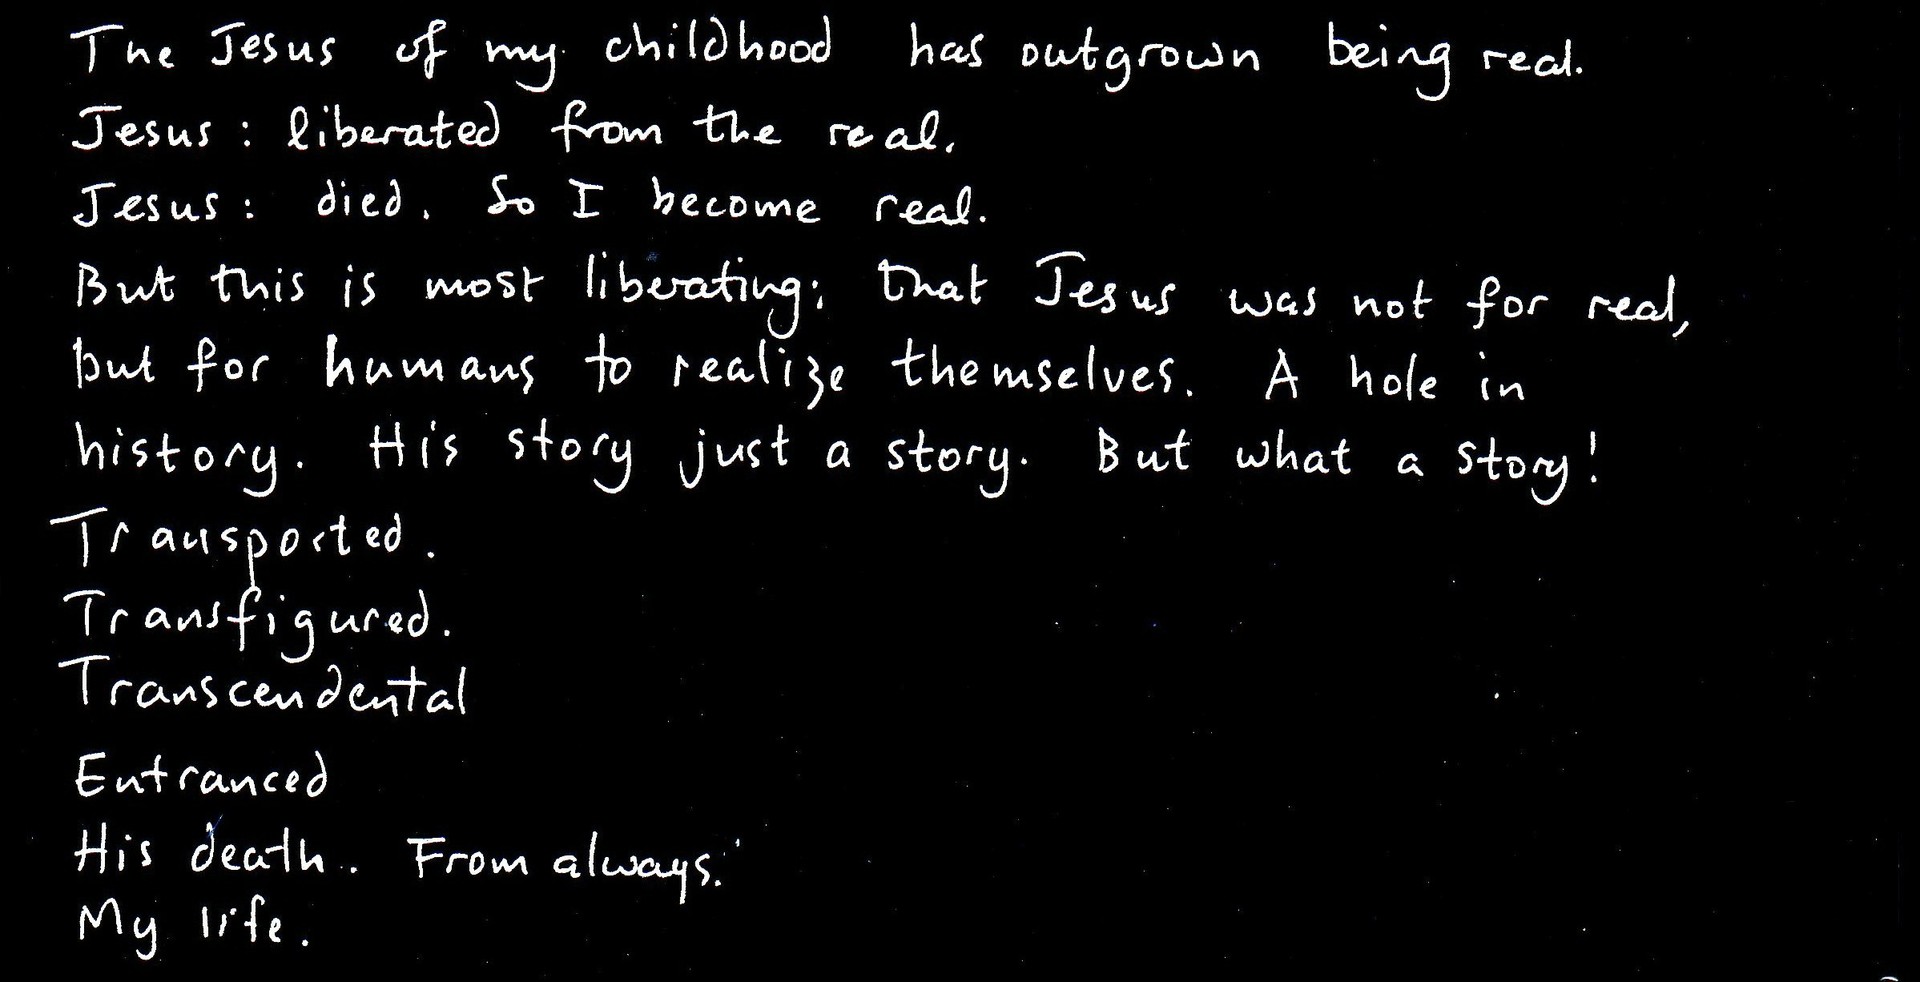 The Jesus of my childhood has outgrown being real.
Jesus: liberated from the real.
Jesus: died. So I become real.
But this is most liberating: that Jesus was not for real,
but for humans to realize themselves. A hole in
history. His story just a story. But what a story!
Transported.
Transfigured.
Transcendental
Entranced
His death. From always.
My life.